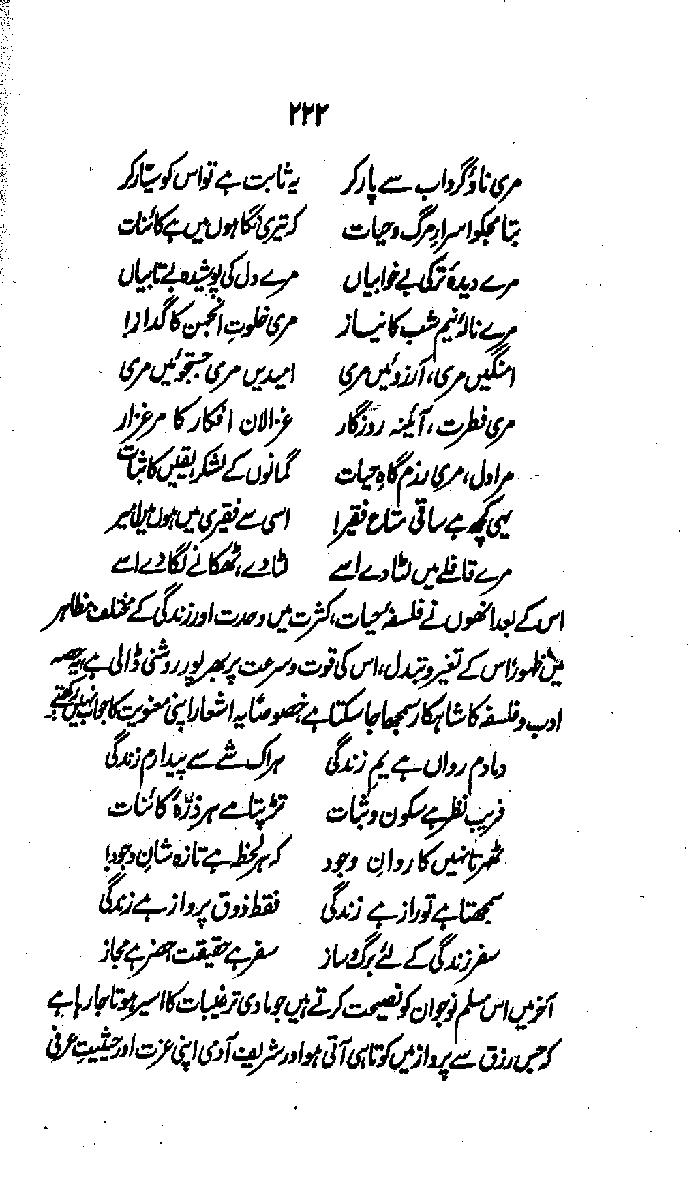 ۲۲۲
مری ناؤ گرداب سے پار کر یہ ثابت ہے تو اس کو سیّار کر
بتا مجکو اسرارِ مرگ و حیات کہ تیری نگاہوں میں ہے کائنات
مرے دیدۂ تر کی بے خوابیاں مرے دل کی پوشیدہ بے تابیاں
مرے نالۂ نیم شب کا نیاز مری خلوتِ انجمن کا گداز!
امنگیں مری، آرزوئیں مری امیدیں مری جستجوئیں مری
مری فطرت، آئینہ روزگار غزالانِ افکار کا مرغزار
مرا دل، مری رزم گاہِ حیات گمانوں کے لشکر یقیں کا ثبات
یہی کچھ ہے ساقی متاعِ فقیر! اسی سے فقیری میں ہوں میں امیر
مرے قافلے میں لٹا دے اسے لٹا دے، ٹھکانے لگا دے اسے
اس کے بعد انھوں نے فلسفۂ حیات، کثرت میں وحدت اور زندگی کے مختلف مظاہر
میں ظہور، اس کے تغیر و تبدل، اس کی قوت و سرعت پر بھرپور روشنی ڈالی ہے، یہ حصہ
ادب و فلسفہ کا شاہکار سمجھا جا سکتا ہے خصوصاً یہ اشعار اپنی معنویت کا جواب نہیں رکھتے۔
دمادم رواں ہے یمِ زندگی ہر اک شے سے پیدا رمِ زندگی
فریبِ نظر ہے سکون و ثبات تڑپتا ہے ہر ذرّۂ کائنات
ٹھہرتا نہیں کاروانِ وجود کہ ہر لحظہ ہے تازہ شانِ وجود!
سمجھتا ہے تو راز ہے زندگی فقط ذوقِ پرواز ہے زندگی
سفر زندگی کے لئے برگ و ساز سفر ہے حقیقت حضر ہے مجاز
آخر میں اس مسلم نوجوان کو نصیحت کرتے ہیں جو مادی ترغیبات کا اسیر ہوتا جا رہا ہے
کہ جس رزق سے پرواز میں کوتاہی آتی ہو اور شریف آدمی اپنی عزت اور حیثیتِ عرفی